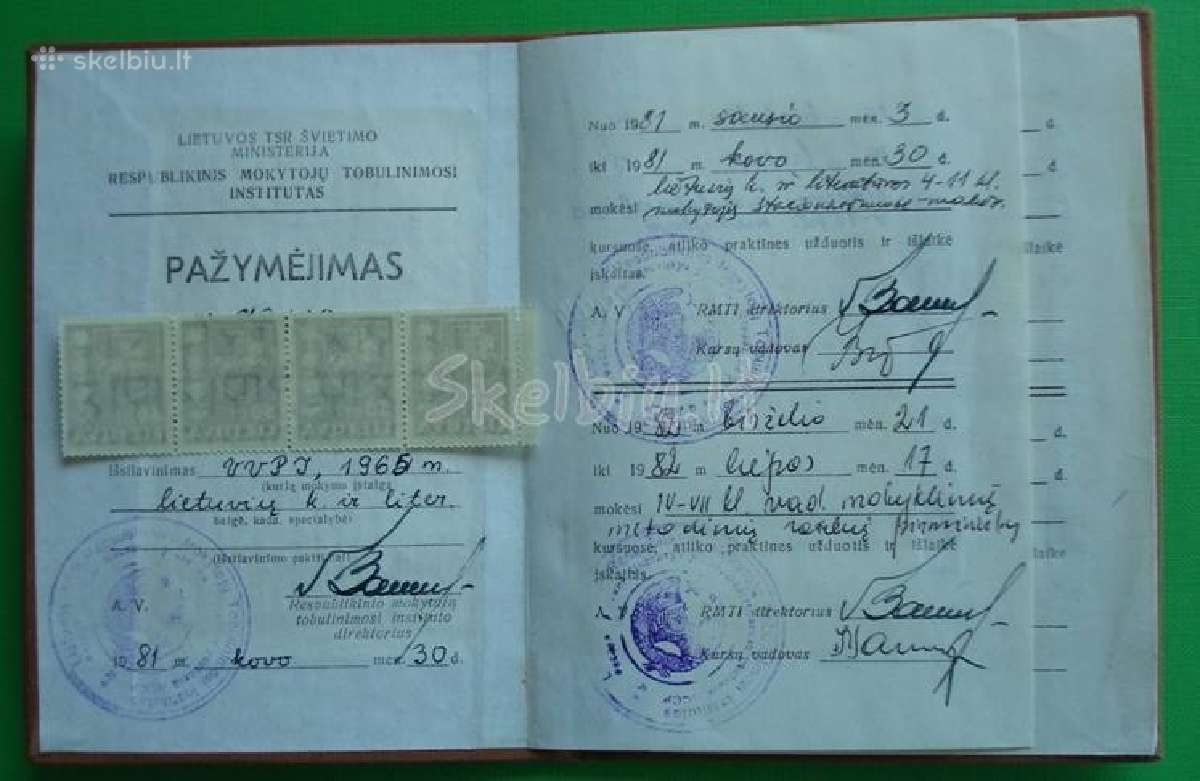 skelbiu.lt
LIETUVOS TSR ŠVIETIMO
MINISTERIJA
RESPUBLIKINIS MOKYTOJŲ TOBULINIMOSI
INSTITUTAS
PAŽYMĖJIMAS
Išsilavinimas VVPI, 1965 m.
(kurią mokymo įstaigą
lietuvių k. ir liter.
baigė, kada, specialybė)
A. V.
Respublikinio mokytojų
tobulinimosi instituto
direktorius
1981 m. kovo mėn. 30 d.
Nuo 1981 m. sausio mėn. 3 d.
iki 1981 m. kovo mėn. 30 d.
lietuvių k. ir literatūros 4-11 kl.
mokėsi mokytojų
kursuose, atliko praktines užduotis ir išlaikė
įskaitas.
A. V. RMTI direktorius
Kursų vadovas
Nuo 1982 m birželio mėn. 21 d.
iki 1982 m liepos mėn. 17 d.
mokėsi IV-VII kl. vad. mokyklinių
metodinių
kursuose, atliko praktines užduotis ir išlaikė
įskaitas.
A. V. RMTI direktorius
Kursų vadovas
d.
d.
išlaikė
d.
d.
išlaikė
Skelbiu.lt